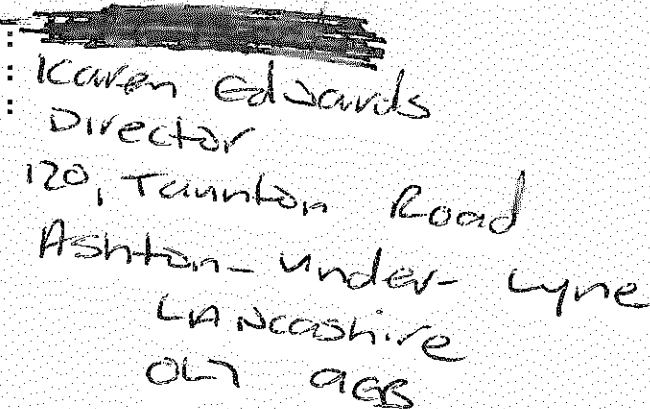 : Karen Edwards
: Director
120, Taunton Road
Ashton-under-Lyne
LANcashire
OL7